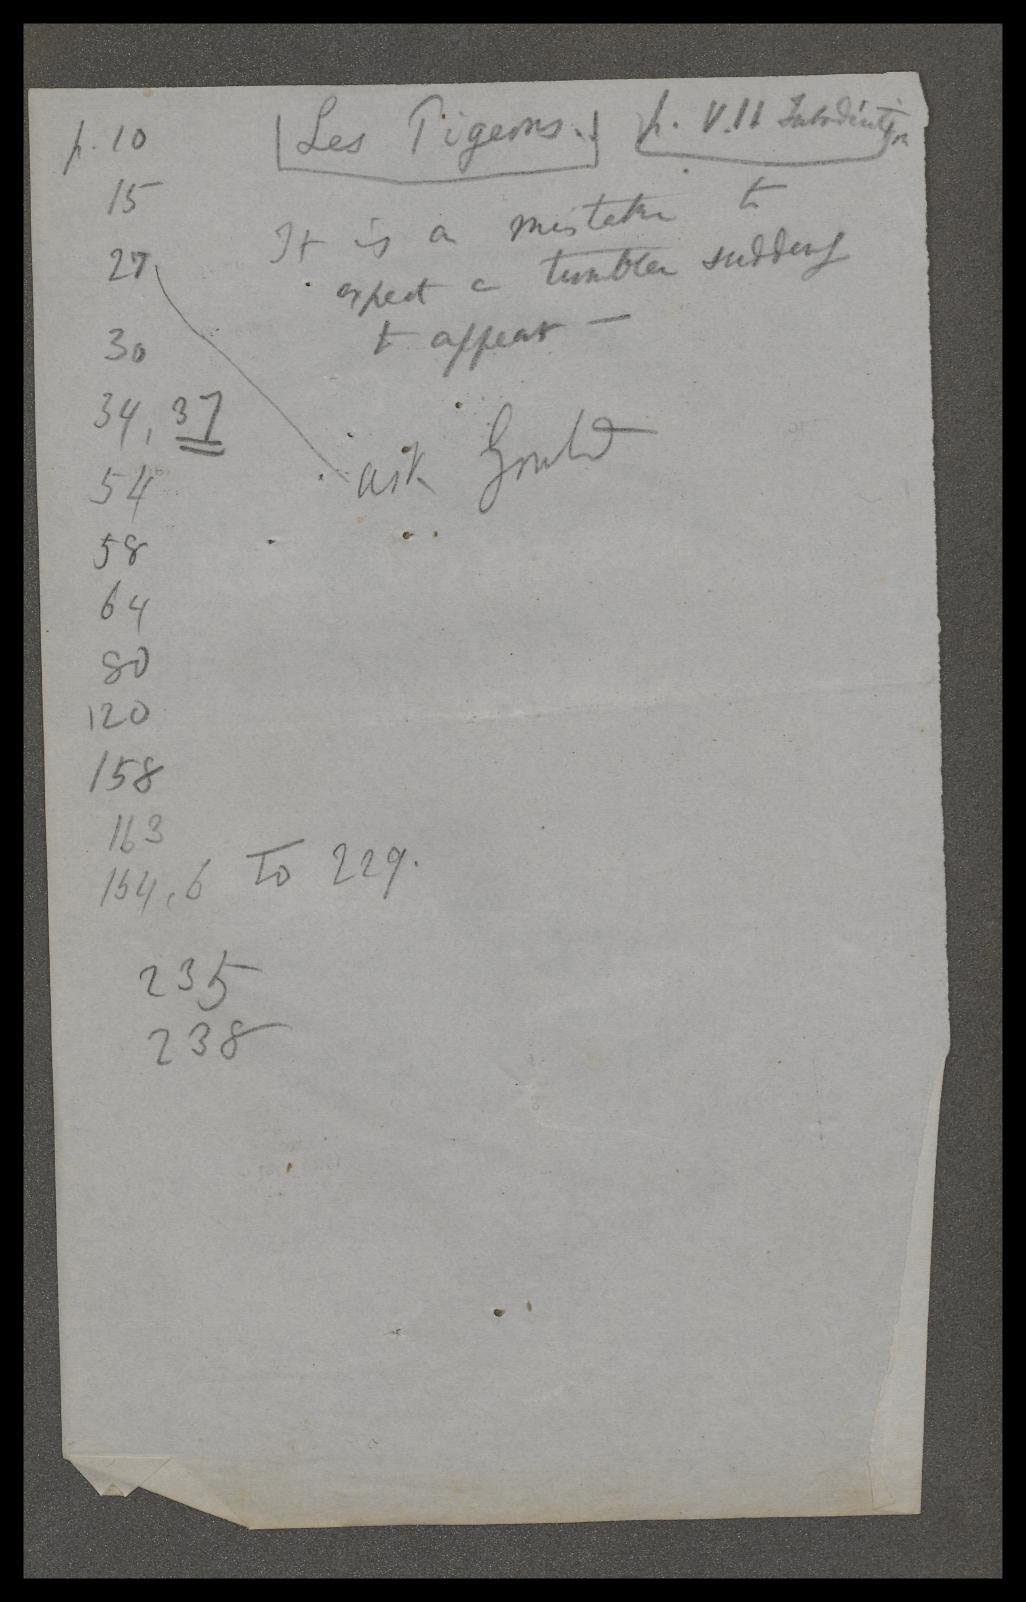 p. 10 Les Pigeons. p. VII Introduction
15
It is a mistake to
27 expect a tumbler suddenly
30 to appear —
34, 37
ask Gould
54
58
64
80
120
158
163
164, 6 to 229.
235
238